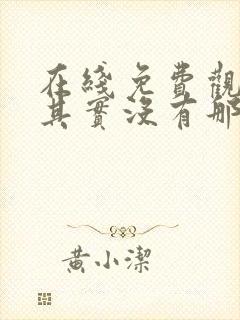 在綫免費觀
其實沒有那
黃小潔